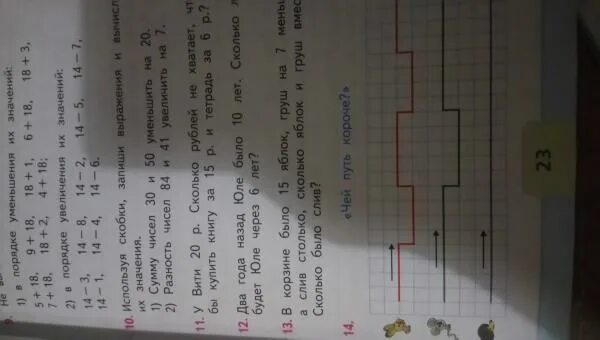 9. Не вы
1) в порядке уменьшения их значений:
5 + 18, 9 + 18, 18 + 1, 6 + 18, 18 + 3,
7 + 18, 18 + 2, 4 + 18;
2) в порядке увеличения их значений:
14 − 3, 14 − 8, 14 − 2, 14 − 5, 14 − 7,
14 − 1, 14 − 4, 14 − 6.
10. Используя скобки, запиши выражения и вычисл
их значения.
1) Сумму чисел 30 и 50 уменьшить на 20.
2) Разность чисел 84 и 41 увеличить на 7.
11. У Вити 20 р. Сколько рублей не хватает, чт
бы купить книгу за 15 р. и тетрадь за 6 р.?
12. Два года назад Юле было 10 лет. Сколько л
будет Юле через 6 лет?
13. В корзине было 15 яблок, груш на 7 меньш
а слив столько, сколько яблок и груш вмес
Сколько было слив?
14. «Чей путь короче?»
23